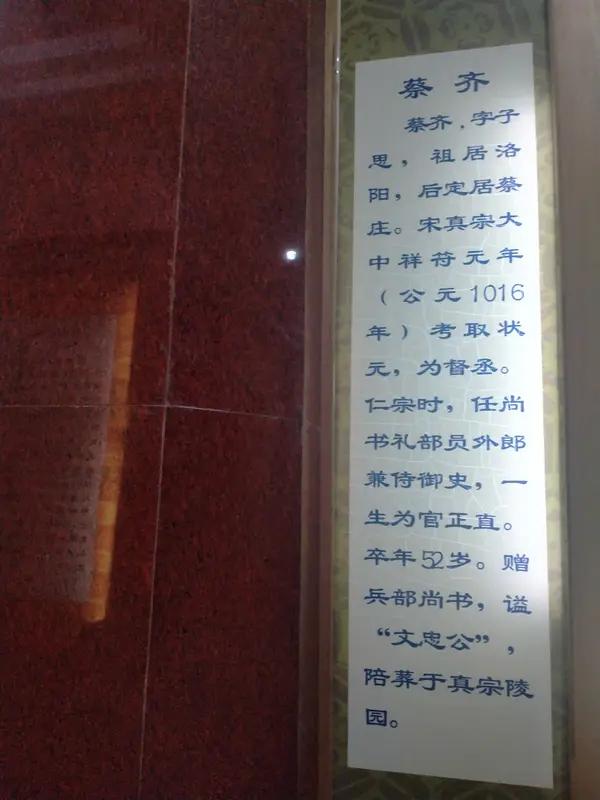 蔡 齐
蔡齐，字子
思，祖居洛
阳，后定居蔡
庄。宋真宗大
中祥符元年
（公元1016
年）考取状
元，为督丞。
仁宗时，任尚
书礼部员外郎
兼侍御史，一
生为官正直。
卒年52岁。赠
兵部尚书，谥
“文忠公”，
陪葬于真宗陵
园。